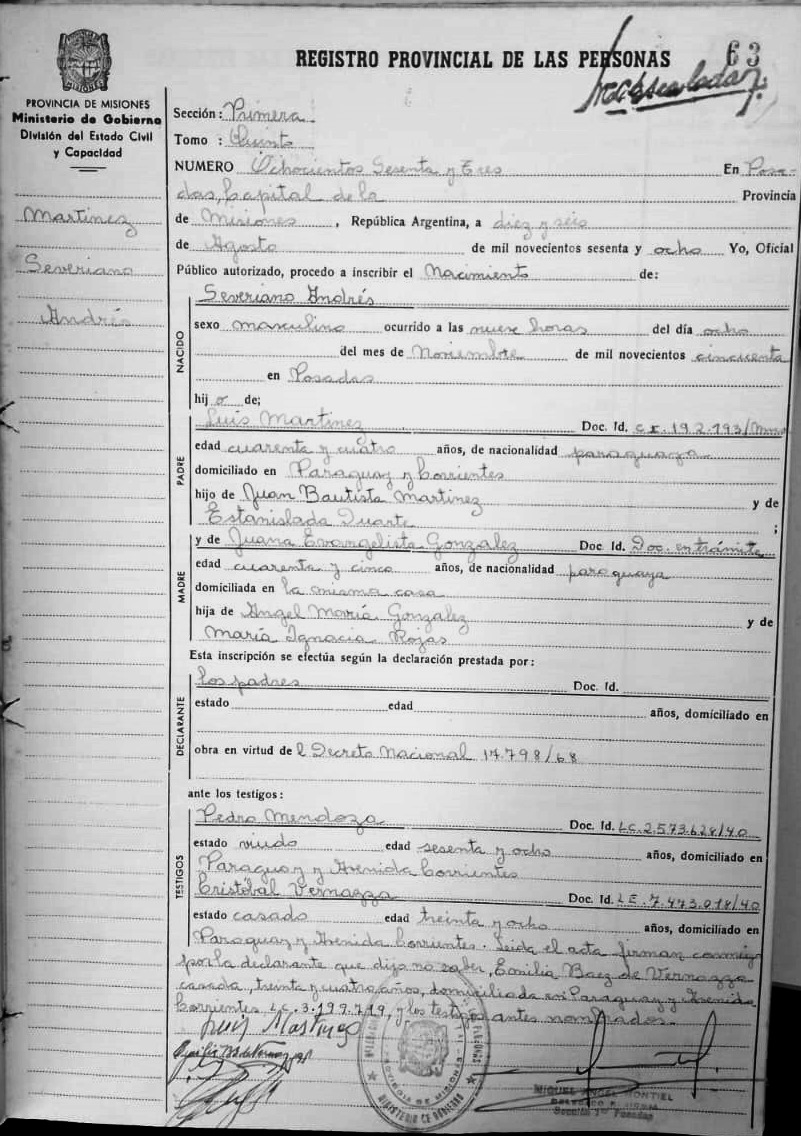 REGISTRO PROVINCIAL DE LAS PERSONAS
63
PROVINCIA DE MISIONES
Ministerio de Gobierno
División del Estado Civil
y Capacidad
Martinez
Severiano
Andrés
Sección: Primera
Tomo : Quinto
NUMERO Ochocientos Sesenta y Tres En Posa-
das, Capital de la Provincia
de Misiones, República Argentina, a diez y seis
de Agosto de mil novecientos sesenta y ocho Yo, Oficial
Público autorizado, procedo a inscribir el Nacimiento de:
NACIDO
Severiano Andrés
sexo masculino ocurrido a las nueve horas del día ocho
del mes de Noviembre de mil novecientos cincuenta
en Posadas
hijo de;
PADRE
Luis Martinez Doc. Id. C.I. 192.793/
edad cuarenta y cuatro años, de nacionalidad paraguaya
domiciliado en Paraguay y Corrientes
hijo de Juan Bautista Martinez y de
Estanislada Duarte ;
MADRE
y de Juana Evangelista Gonzalez Doc Id. Doc. en trámite
edad cuarenta y cinco años, de nacionalidad paraguaya
domiciliada en la misma casa
hija de Angel María Gonzalez y de
María Ignacia Rojas
Esta inscripción se efectúa según la declaración prestada por:
DECLARANTE
los padres Doc. Id.
estado edad años, domiciliado en
obra en virtud del Decreto Nacional 17.798/68
ante los testigos:
TESTIGOS
Pedro Mendoza Doc. Id. L.C. 2.573.628/40
estado viudo edad sesenta y ocho años, domiciliado en
Paraguay y Avenida Corrientes
Cristóbal Vernazza Doc. Id. L.E. 7.473.018/40
estado casado edad treinta y ocho años, domiciliado en
Paraguay y Avenida Corrientes. Leida el acta firman conmigo
por la declarante que dijo no saber, Emilia Baez de Vernazza
casada, treinta y cuatro años, domiciliada en Paraguay y Avenida
Corrientes L.C. 3.199.719, y los testigos antes nombrados.
Luis Martinez
MINISTERIO DE GOBIERNO
PROVINCIA DE MISIONES
MIGUEL ANGEL MONTIEL
Sección 1ra Posadas